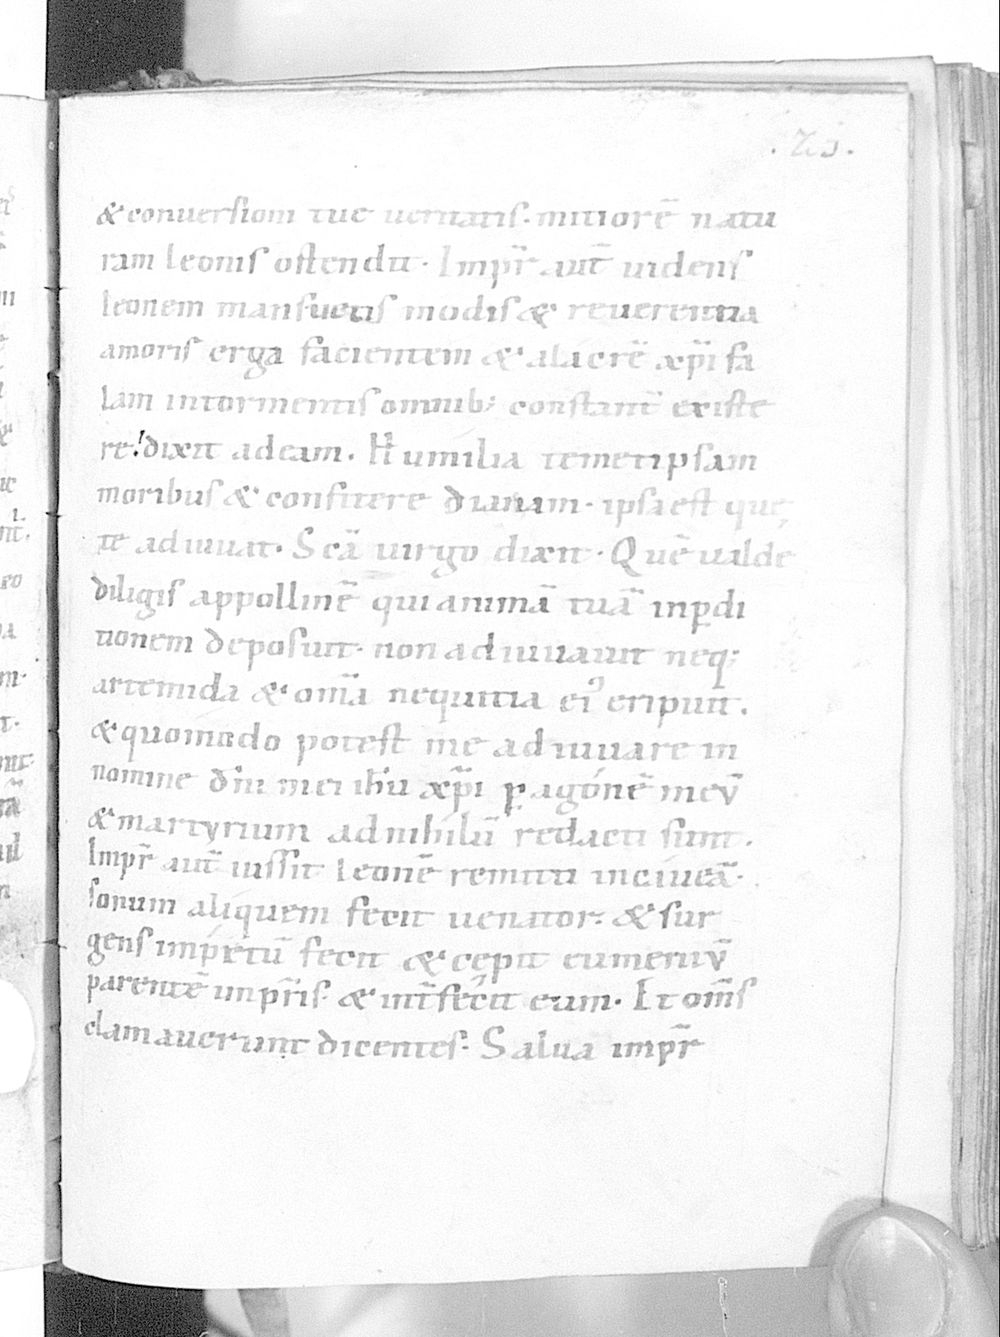 .23.
& conuersioni tue ueritatis. mitiorē natu
ram leonis ostendit. Impr̄ aut̄ uidens
leonem mansuetis modis & reuerentia
amoris erga facientem & alacrē xp̄i fa
lam intormentis omnib; constant̄ existe
re! dixit ad eam. Humilia temetipsam
moribus & confitere dianam. ipsa est quę
te adiuuat. Scā uirgo dixit. Quē ualde
diligis appollinē qui animā tuā inꝑdi
tionem deposuit. non adiuuauit neq;
artemida & om̄a nequitia ei᾽ eripuit.
& quomodo potest me adiuuare in
nomine dn̄i mei ih̄u xp̄i ꝑ agonē meū
& martyrium ad nihilū redacti sunt.
Impr̄ aut̄ iussit leonē remitti in ciueā.
sonum aliquem fecit uenator. & sur
gens impetū fecit & cępit eumeniū
parentē impr̄is. & int̄fecit eum. Et om̄s
clamauerunt dicentes. Salua impr̄